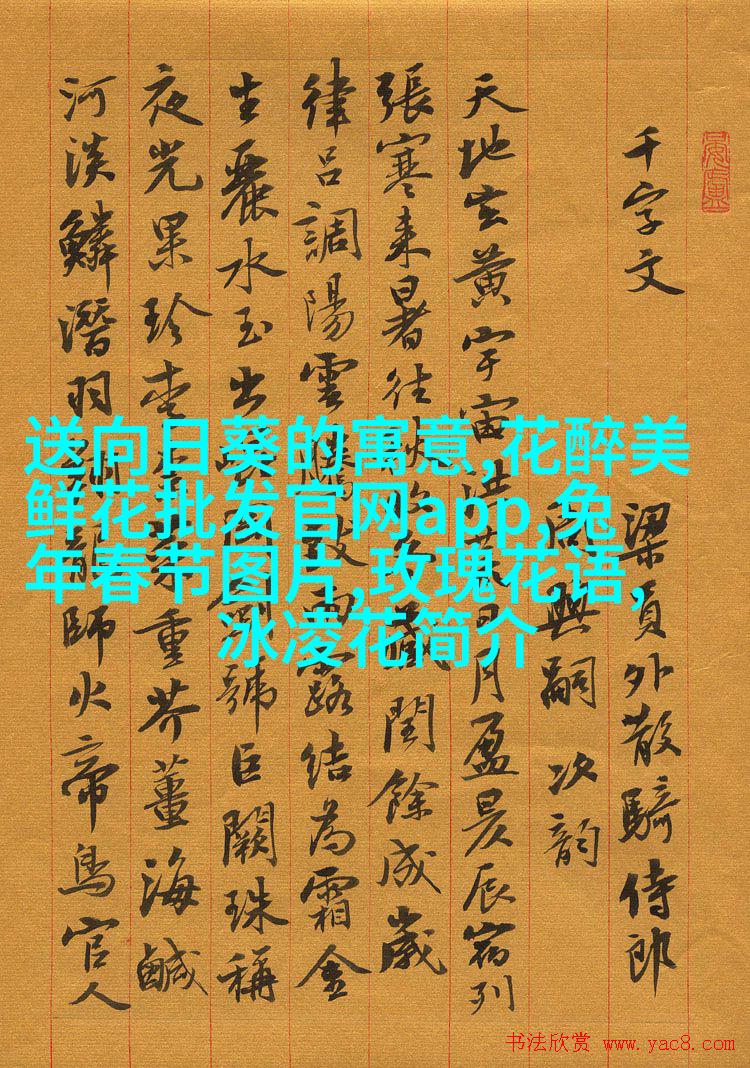 千字文
梁員外散騎侍郎
周興嗣次韵
天地玄黄宇宙洪荒日月盈昃辰宿列
張寒来暑往秋收冬藏閏餘成歲
律吕調陽雲騰致雨露結為霜金
生麗水玉出崑岡劍號巨闕珠稱
夜光果珍李柰菜重芥薑海鹹
河淡鱗潛羽翔龍師火帝鳥官人
送向日葵的寓意,花醉美
鲜花批发官网app,兔
年春节图片,玫瑰花语,
冰凌花简介
书法欣赏 www.yac8.com